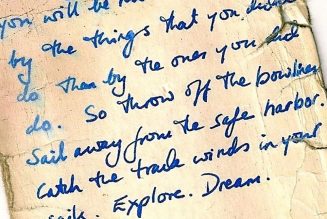 you will be
by the things that you
do than by the ones you did
do. So throw off the bowlines
Sail away from the safe harbor.
Catch the trade winds in your
Explore. Dream.